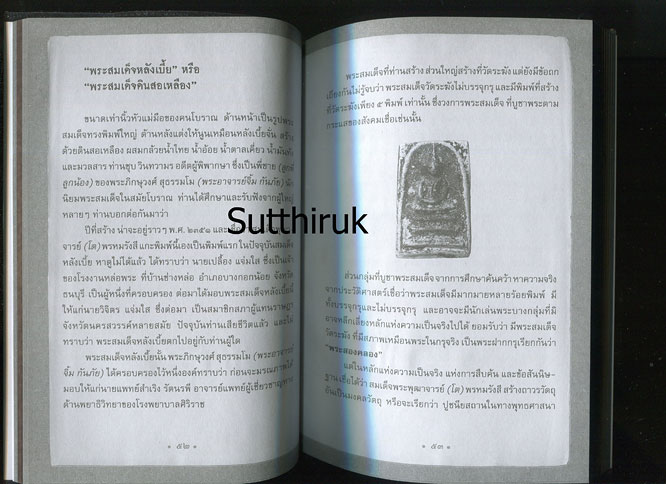 “พระสมเด็จหลังเบี้ย” หรือ
“พระสมเด็จดินสอเหลือง”
ขนาดเท่านิ้วหัวแม่มือของคนโบราณ ด้านหน้าเป็นรูป
สมเด็จทรงพิมพ์ใหญ่ ด้านหลังแต่งให้นูนเหมือนหลังเบี้ยจั่น สร้าง
ด้วยดินสอเหลือง ผสมกล้วยน้ำไทย น้ำอ้อย น้ำตาลเคี่ยว
และมวลสาร ท่านชุบ วินทวามร อดีตผู้พิพากษา ซึ่งเป็นพี่ชาย
ลูกน้อง) ของพระภิกษุวงศ์ สุธรรมโม (พระอาจารย์จิ้ม กันภัย)
นิยมพระสมเด็จในสมัยโบราณ ท่านได้ศึกษาและรับฟังจากผู้ใหญ่
หลายๆ ท่านบอกต่อกันมาว่า
ปีที่สร้าง น่าจะอยู่ราวๆ พ.ศ. ๒๓๕๑
อาจารย์ (โต) พรหมรังสี แกะพิมพ์นี้เองเป็นพิมพ์แรก ในปัจจุบันสมเด็จ
หลังเบี้ย หาดูไม่ได้แล้ว ได้ทราบว่า นายเปลื้อง แจ่มใส ซึ่งเป็น
ของโรงงานหล่อพระ ที่บ้านช่างหล่อ อำเภอบางกอกน้อย จังหวัด
ธนบุรี เป็นผู้หนึ่งที่ครอบครอง ต่อมาได้มอบพระสมเด็จหลังเบี้ยนี้
ให้แก่นายวิจิตร แจ่มใส ซึ่งต่อมา เป็นสมาชิกสภาผู้แทนราษฎร
จังหวัดนครสวรรค์หลายสมัย ปัจจุบันท่านเสียชีวิตแล้ว และ
ทราบว่า พระสมเด็จหลังเบี้ยตกไปอยู่กับท่านผู้ใด
พระสมเด็จหลังเบี้ยนั้น พระภิกษุวงศ์ สุธรรมโม (พระอาจารย์
จิ้ม กันภัย) ได้ครอบครองไว้หนึ่งองค์ทราบว่า ก่อนจะมรณภาพได้
มอบให้แก่นายแพทย์สำเริง รัตนรพี อาจารย์แพทย์ผู้เชี่ยวชาญทาง
ด้านพยาธิวิทยาของโรงพยาบาลศิริราช
• ๕๒ •
พระสมเด็จที่ท่านสร้าง ส่วนใหญ่สร้างที่วัดระฆัง แต่ยังมีข้อถก
เถียงกันไม่รู้จบว่า พระสมเด็จวัดระฆังไม่บรรจุกรุ และมีพิมพ์ที่สร้าง
ที่วัดระฆังเพียง ๕ พิมพ์ เท่านั้น ซึ่งวงการพระสมเด็จ ที่บูชาพระตาม
กระแสของสังคมเชื่อเช่นนั้น
ส่วนกลุ่มที่บูชาพระสมเด็จจากการศึกษาค้นคว้า หาความจริง
จากประวัติศาสตร์เชื่อว่าพระสมเด็จมีมากมายหลายร้อยพิมพ์ มี
ทั้งบรรจุกรุและไม่บรรจุกรุ และอาจจะมีนักเล่นพระบางกลุ่มที่มี
อาจหลีกเลี่ยงหลักแห่งความเป็นจริงไปได้ ยอมรับว่า มีพระสมเด็จ
วัดระฆัง ที่มีสภาพเหมือนพระในกรุจริง เป็นพระฝากกรุเรียกกันว่า
“พระสองคลอง”
แต่ในหลักแห่งความเป็นจริง แห่งการสืบค้น และข้อสันนิษ-
ฐาน เชื่อได้ว่า สมเด็จพระพุฒาจารย์ (โต) พรหมรังสี สร้างถาวรวัตถุ
อันเป็นมงคลวัตถุ หรือจะเรียกว่า ปูชนียสถานในทางพุทธศาสนา
• ๕๓ •
Sutthiruk